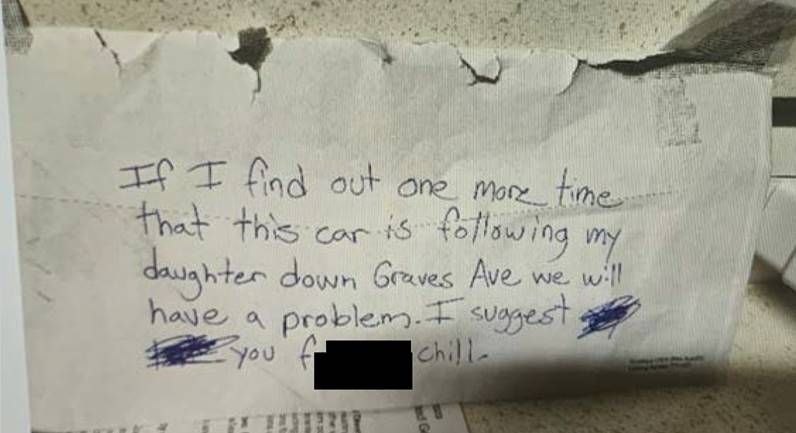 If I find out one more time
that this car is following my
daughter down Graves Ave we will
have a problem. I suggest
you f chill.